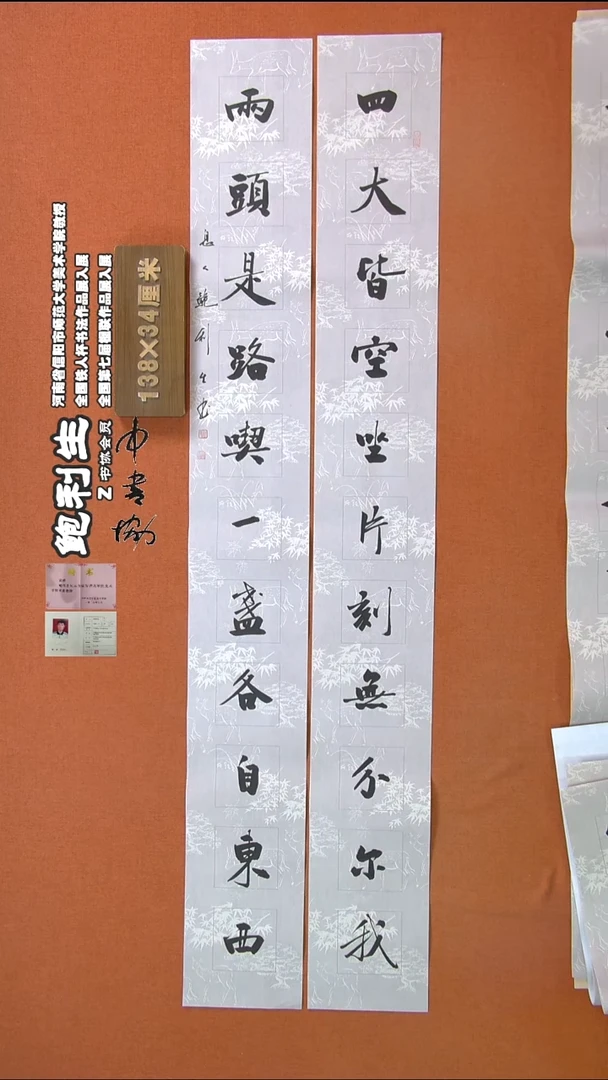 四大皆空坐片刻無分尔我
兩頭是路喫一盏各自東西
鲍利生
138×34厘米
河南省信阳市师范大学美术学院教授
全国铁人杯书法作品展入展
全国第七届楹联作品展入展
鲍利生
Z书协会员
中书协